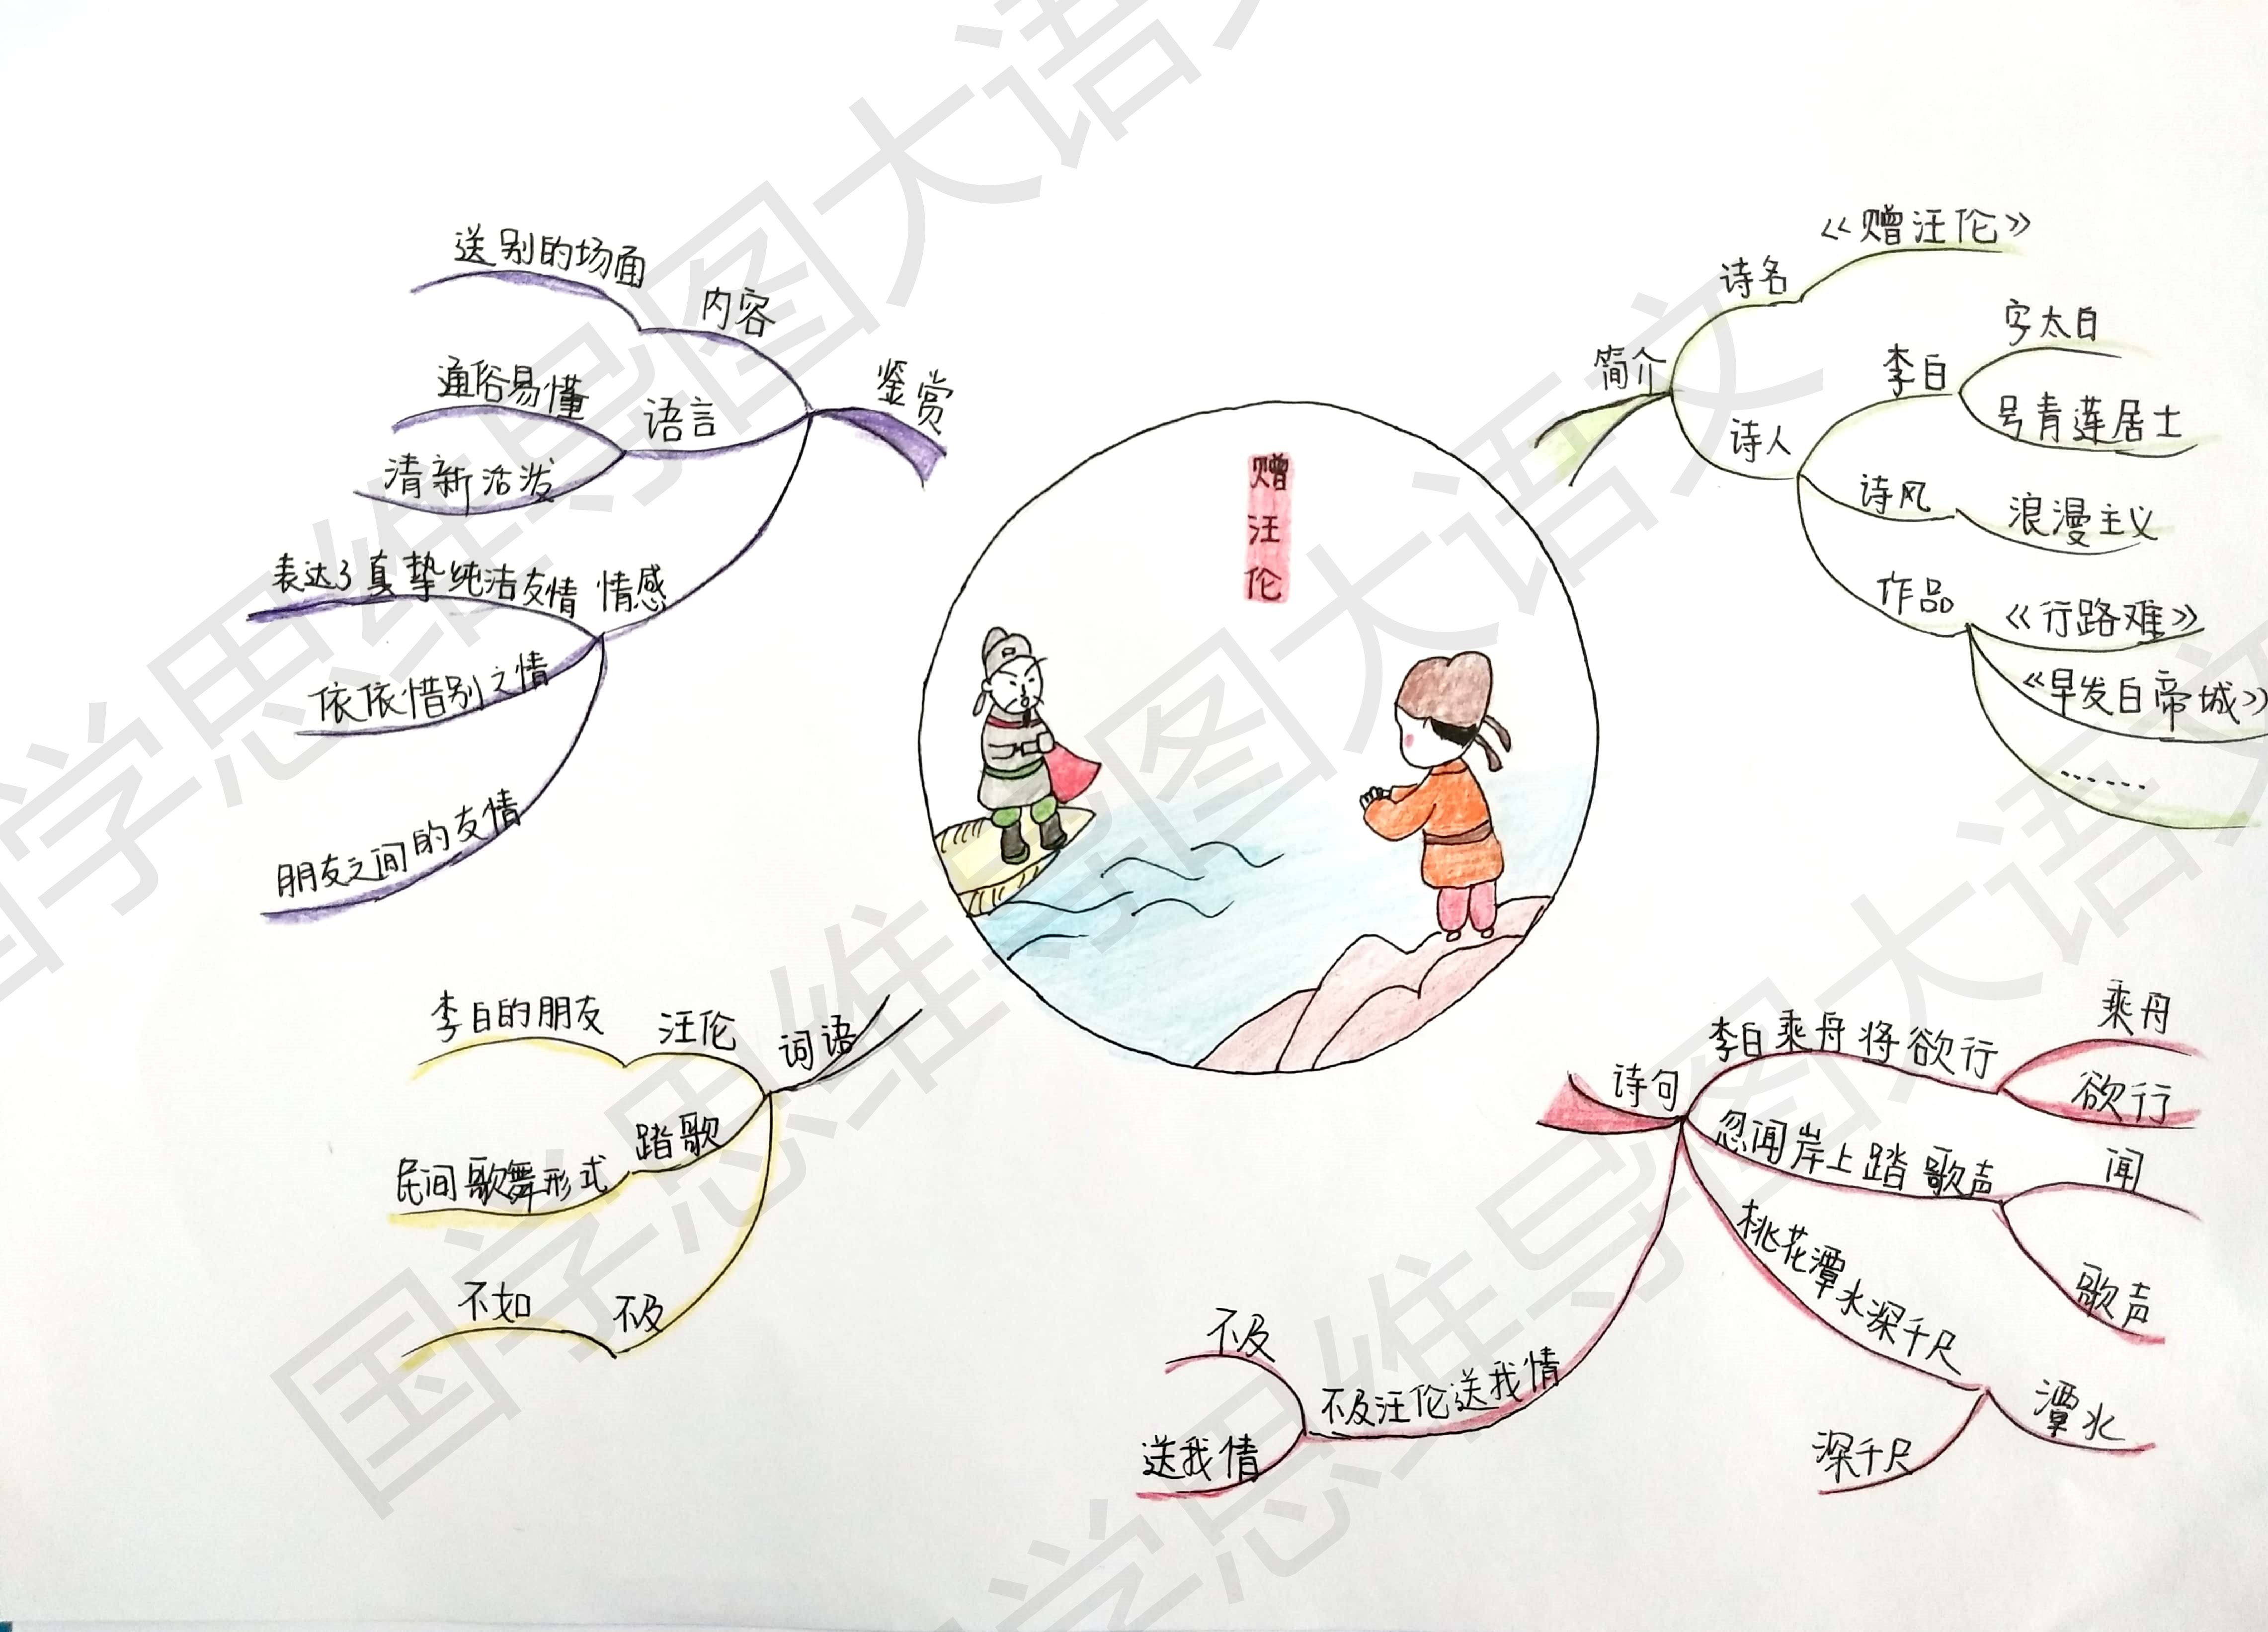 赠汪伦
简介
诗名
《赠汪伦》
诗人
李白
字太白
号青莲居士
诗风
浪漫主义
作品
《行路难》
《早发白帝城》
……
诗句
李白乘舟将欲行
乘舟
欲行
忽闻岸上踏歌声
闻
歌声
桃花潭水深千尺
潭水
深千尺
不及汪伦送我情
不及
送我情
词语
汪伦
李白的朋友
踏歌
民间歌舞形式
不及
不如
鉴赏
内容
送别的场面
语言
通俗易懂
清新活泼
情感
表达了真挚纯洁友情
依依惜别之情
朋友之间的友情
国学思维导图大语文
国学思维导图大语文
国学思维导图大语文